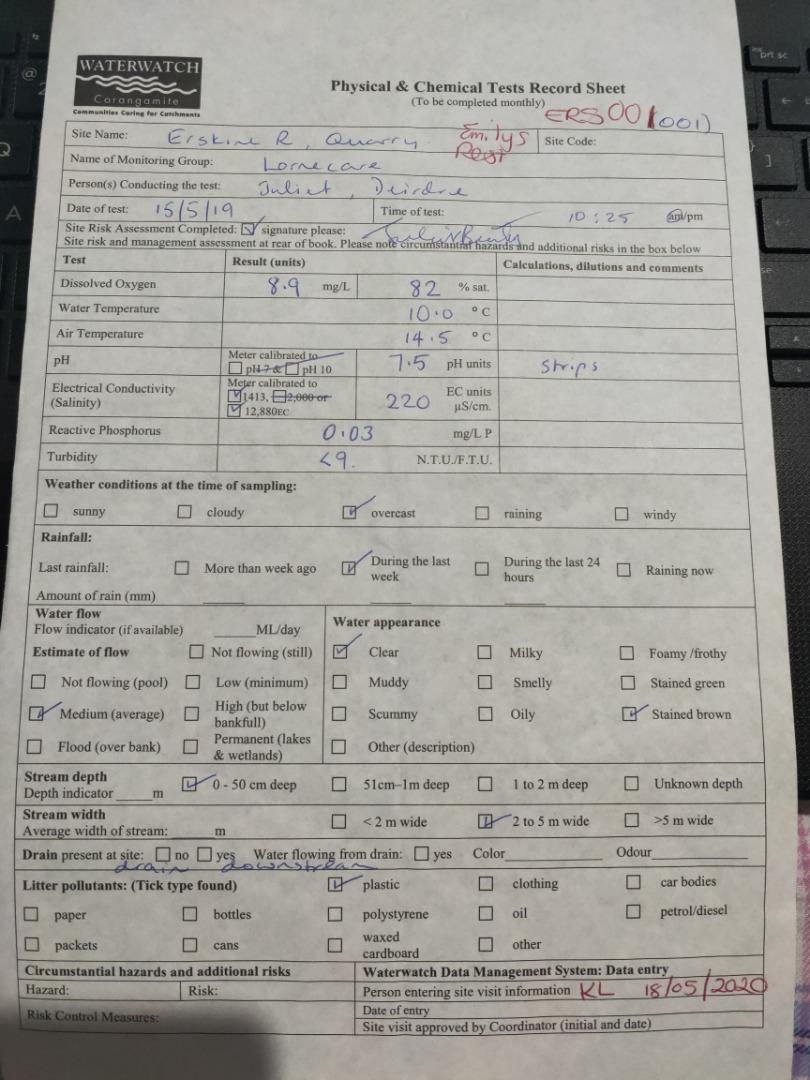 WATERWATCH
Corangamite
Communities Caring for Catchments
Physical & Chemical Tests Record Sheet
(To be completed monthly)
ERS001 (001)
Site Name: Erskine R, Quarry Emilys Rest Site Code:
Name of Monitoring Group: Lornecare
Person(s) Conducting the test: Juliet, Deirdre
Date of test: 15/5/19 Time of test: 10:25 am/pm
Site Risk Assessment Completed: signature please:
Site risk and management assessment at rear of book. Please note circumstantial hazards and additional risks in the box below
Test Result (units) Calculations, dilutions and comments
Dissolved Oxygen 8.9 mg/L 82 % sat.
Water Temperature 10.0 °C
Air Temperature 14.5 °C
pH Meter calibrated to pH 7 & pH 10 7.5 pH units Strips
Electrical Conductivity (Salinity) Meter calibrated to 1413, 2,000 or 12,880EC 220 EC units µS/cm.
Reactive Phosphorus 0.03 mg/L P
Turbidity <9. N.T.U./F.T.U.
Weather conditions at the time of sampling:
sunny cloudy overcast raining windy
Rainfall:
Last rainfall: More than week ago During the last week During the last 24 hours Raining now
Amount of rain (mm)
Water flow
Flow indicator (if available) ML/day
Water appearance
Estimate of flow Not flowing (still) Clear Milky Foamy /frothy
Not flowing (pool) Low (minimum) Muddy Smelly Stained green
Medium (average) High (but below bankfull) Scummy Oily Stained brown
Flood (over bank) Permanent (lakes & wetlands) Other (description)
Stream depth
Depth indicator m 0 - 50 cm deep 51cm–1m deep 1 to 2 m deep Unknown depth
Stream width
Average width of stream: m < 2 m wide 2 to 5 m wide >5 m wide
Drain present at site: no yes Water flowing from drain: yes Color Odour
drain downstream
Litter pollutants: (Tick type found) plastic clothing car bodies
paper bottles polystyrene oil petrol/diesel
packets cans waxed cardboard other
Circumstantial hazards and additional risks Waterwatch Data Management System: Data entry
Hazard: Risk: Person entering site visit information KL 18/05/2020
Date of entry
Risk Control Measures: Site visit approved by Coordinator (initial and date)